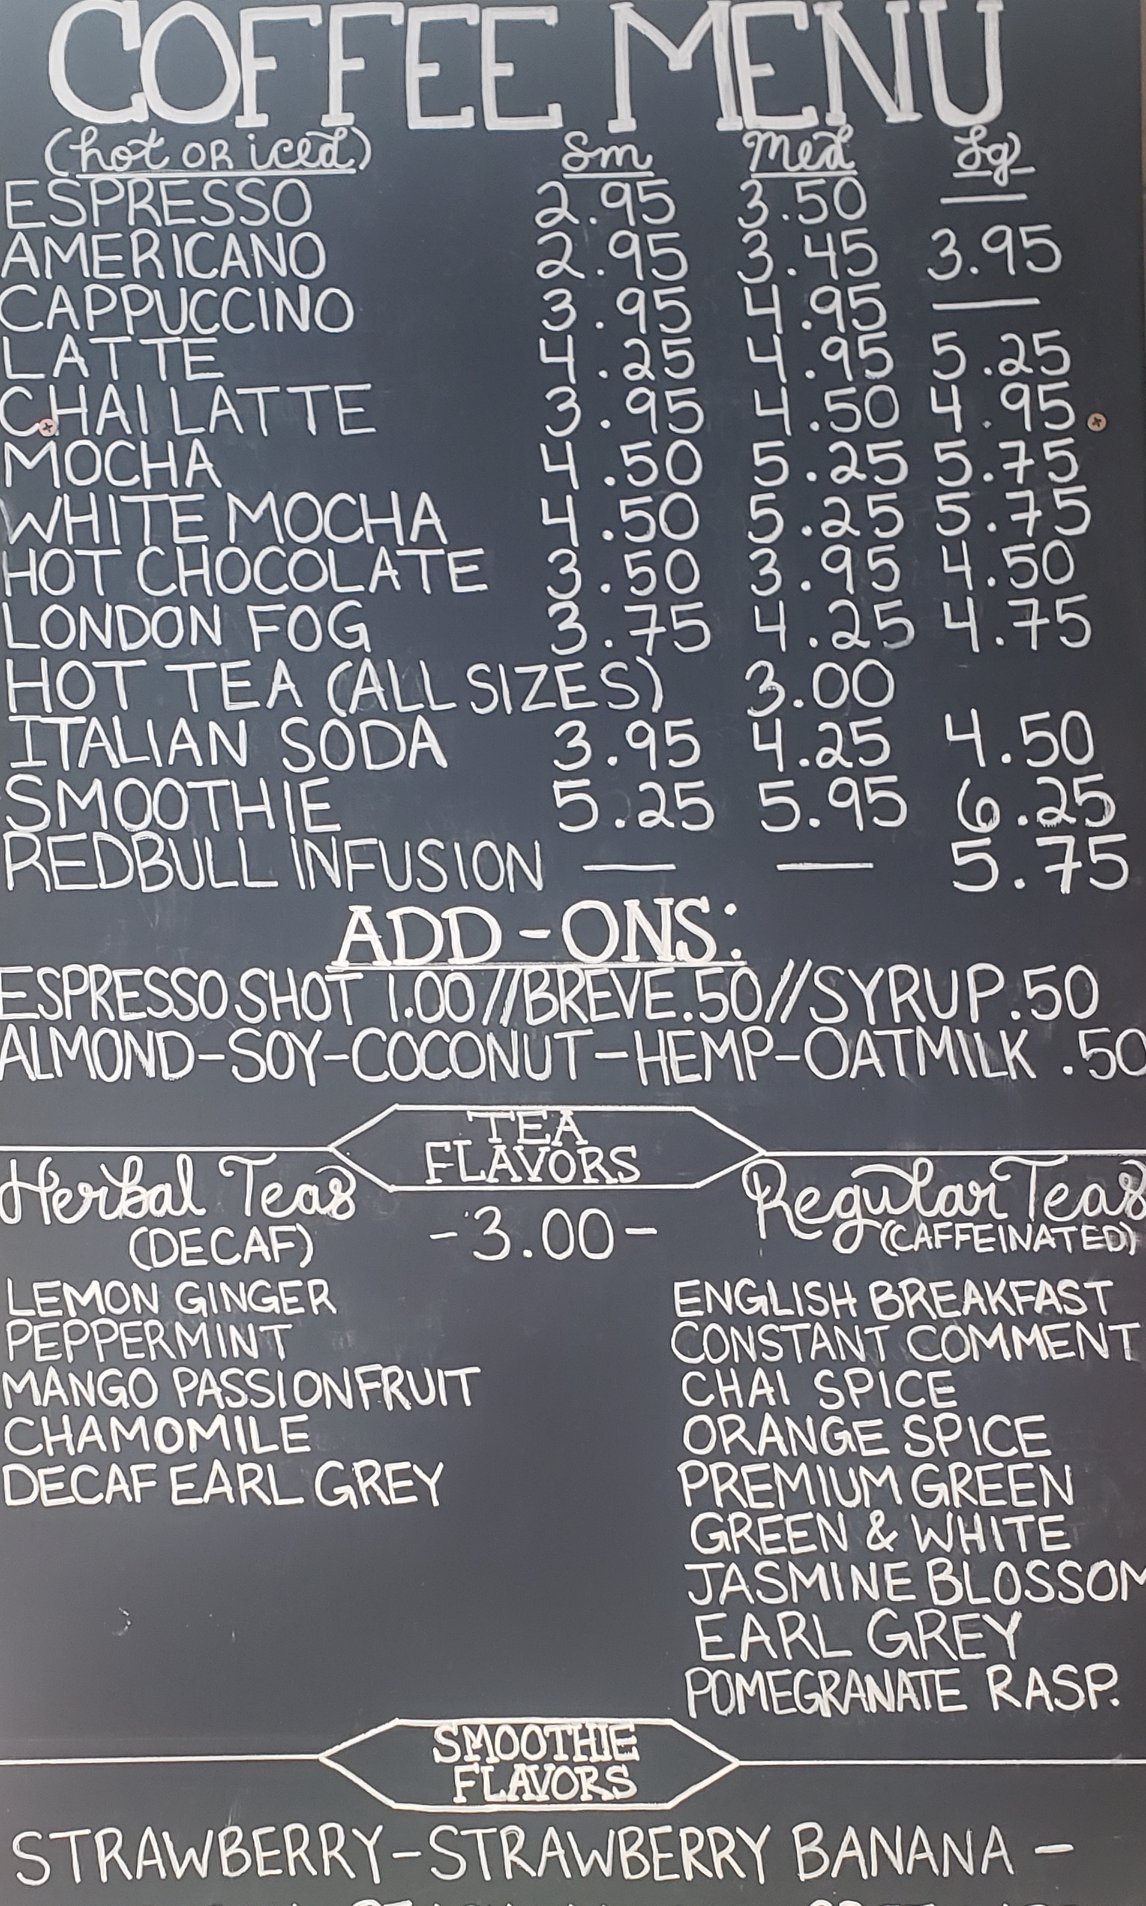 COFFEE MENU
(hot OR iced) Sm Med Lg
ESPRESSO 2.95 3.50 —
AMERICANO 2.95 3.45 3.95
CAPPUCCINO 3.95 4.95 —
LATTE 4.25 4.95 5.25
CHAI LATTE 3.95 4.50 4.95
MOCHA 4.50 5.25 5.75
WHITE MOCHA 4.50 5.25 5.75
HOT CHOCOLATE 3.50 3.95 4.50
LONDON FOG 3.75 4.25 4.75
HOT TEA (ALL SIZES) 3.00
ITALIAN SODA 3.95 4.25 4.50
SMOOTHIE 5.25 5.95 6.25
REDBULL INFUSION — — 5.75
ADD-ONS:
ESPRESSO SHOT 1.00//BREVE .50//SYRUP .50
ALMOND-SOY-COCONUT-HEMP-OATMILK .50
TEA
FLAVORS
-3.00-
Herbal Teas
(DECAF)
LEMON GINGER
PEPPERMINT
MANGO PASSIONFRUIT
CHAMOMILE
DECAF EARL GREY
Regular Teas
(CAFFEINATED)
ENGLISH BREAKFAST
CONSTANT COMMENT
CHAI SPICE
ORANGE SPICE
PREMIUM GREEN
GREEN & WHITE
JASMINE BLOSSOM
EARL GREY
POMEGRANATE RASP.
SMOOTHIE
FLAVORS
STRAWBERRY-STRAWBERRY BANANA -